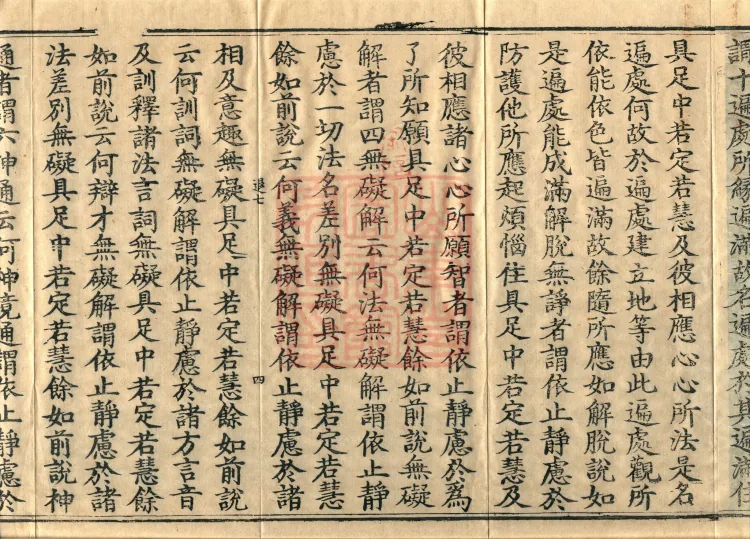 謂十遍處所觸遍滿故名遍處於其遍滿住
具足中若定若慧及彼相應心心所法是名
遍處何故於遍處建立地等由此遍處觀所
依能依色皆遍滿故餘隨所應如解脫說如
是遍處能成滿解脫無諍者謂依止靜慮於
防護他所應起煩惱住具足中若定若慧及
彼相應諸心心所願智者謂依止靜慮於為
了所知願具足中若定若慧餘如前說無礙
解者謂四無礙解云何法無礙解謂依止靜
慮於一切法名差別無礙具足中若定若慧
餘如前說云何義無礙解謂依止靜慮於諸
退七 四
相及意趣無礙具足中若定若慧餘如前說
云何訓詞無礙解謂依止靜慮於諸方言音
及訓釋諸法言詞無礙具足中若定若慧餘
如前說云何辯才無礙解謂依止靜慮於諸
法差別無礙具足中若定若慧餘如前說神
通者謂六神通云何神境通謂依止靜慮於